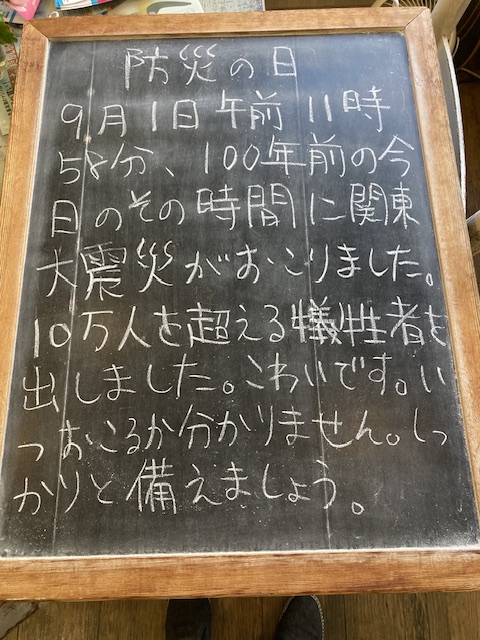 防災の日
9月1日午前11時
58分、100年前の今
日のその時間に関東
大震災がおこりました。
10万人を超える犠牲者を
出しました。こわいです。い
つおこるか分かりません。しっ
かりと備えましょう。